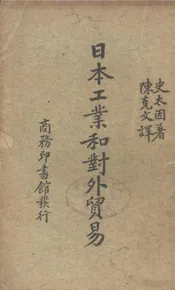 史太因著
陳克文譯
日本工業和對外貿易
商務印書館發行